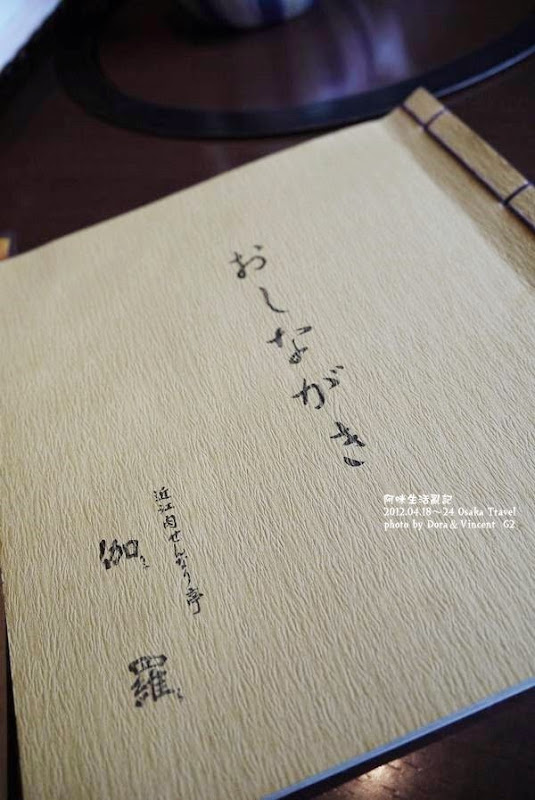 おしながき
近江肉せんなり亭
伽羅
阿咪生活聚記
2012.04.18~24 Osaka Travel
photo by Dora & Vincent G2